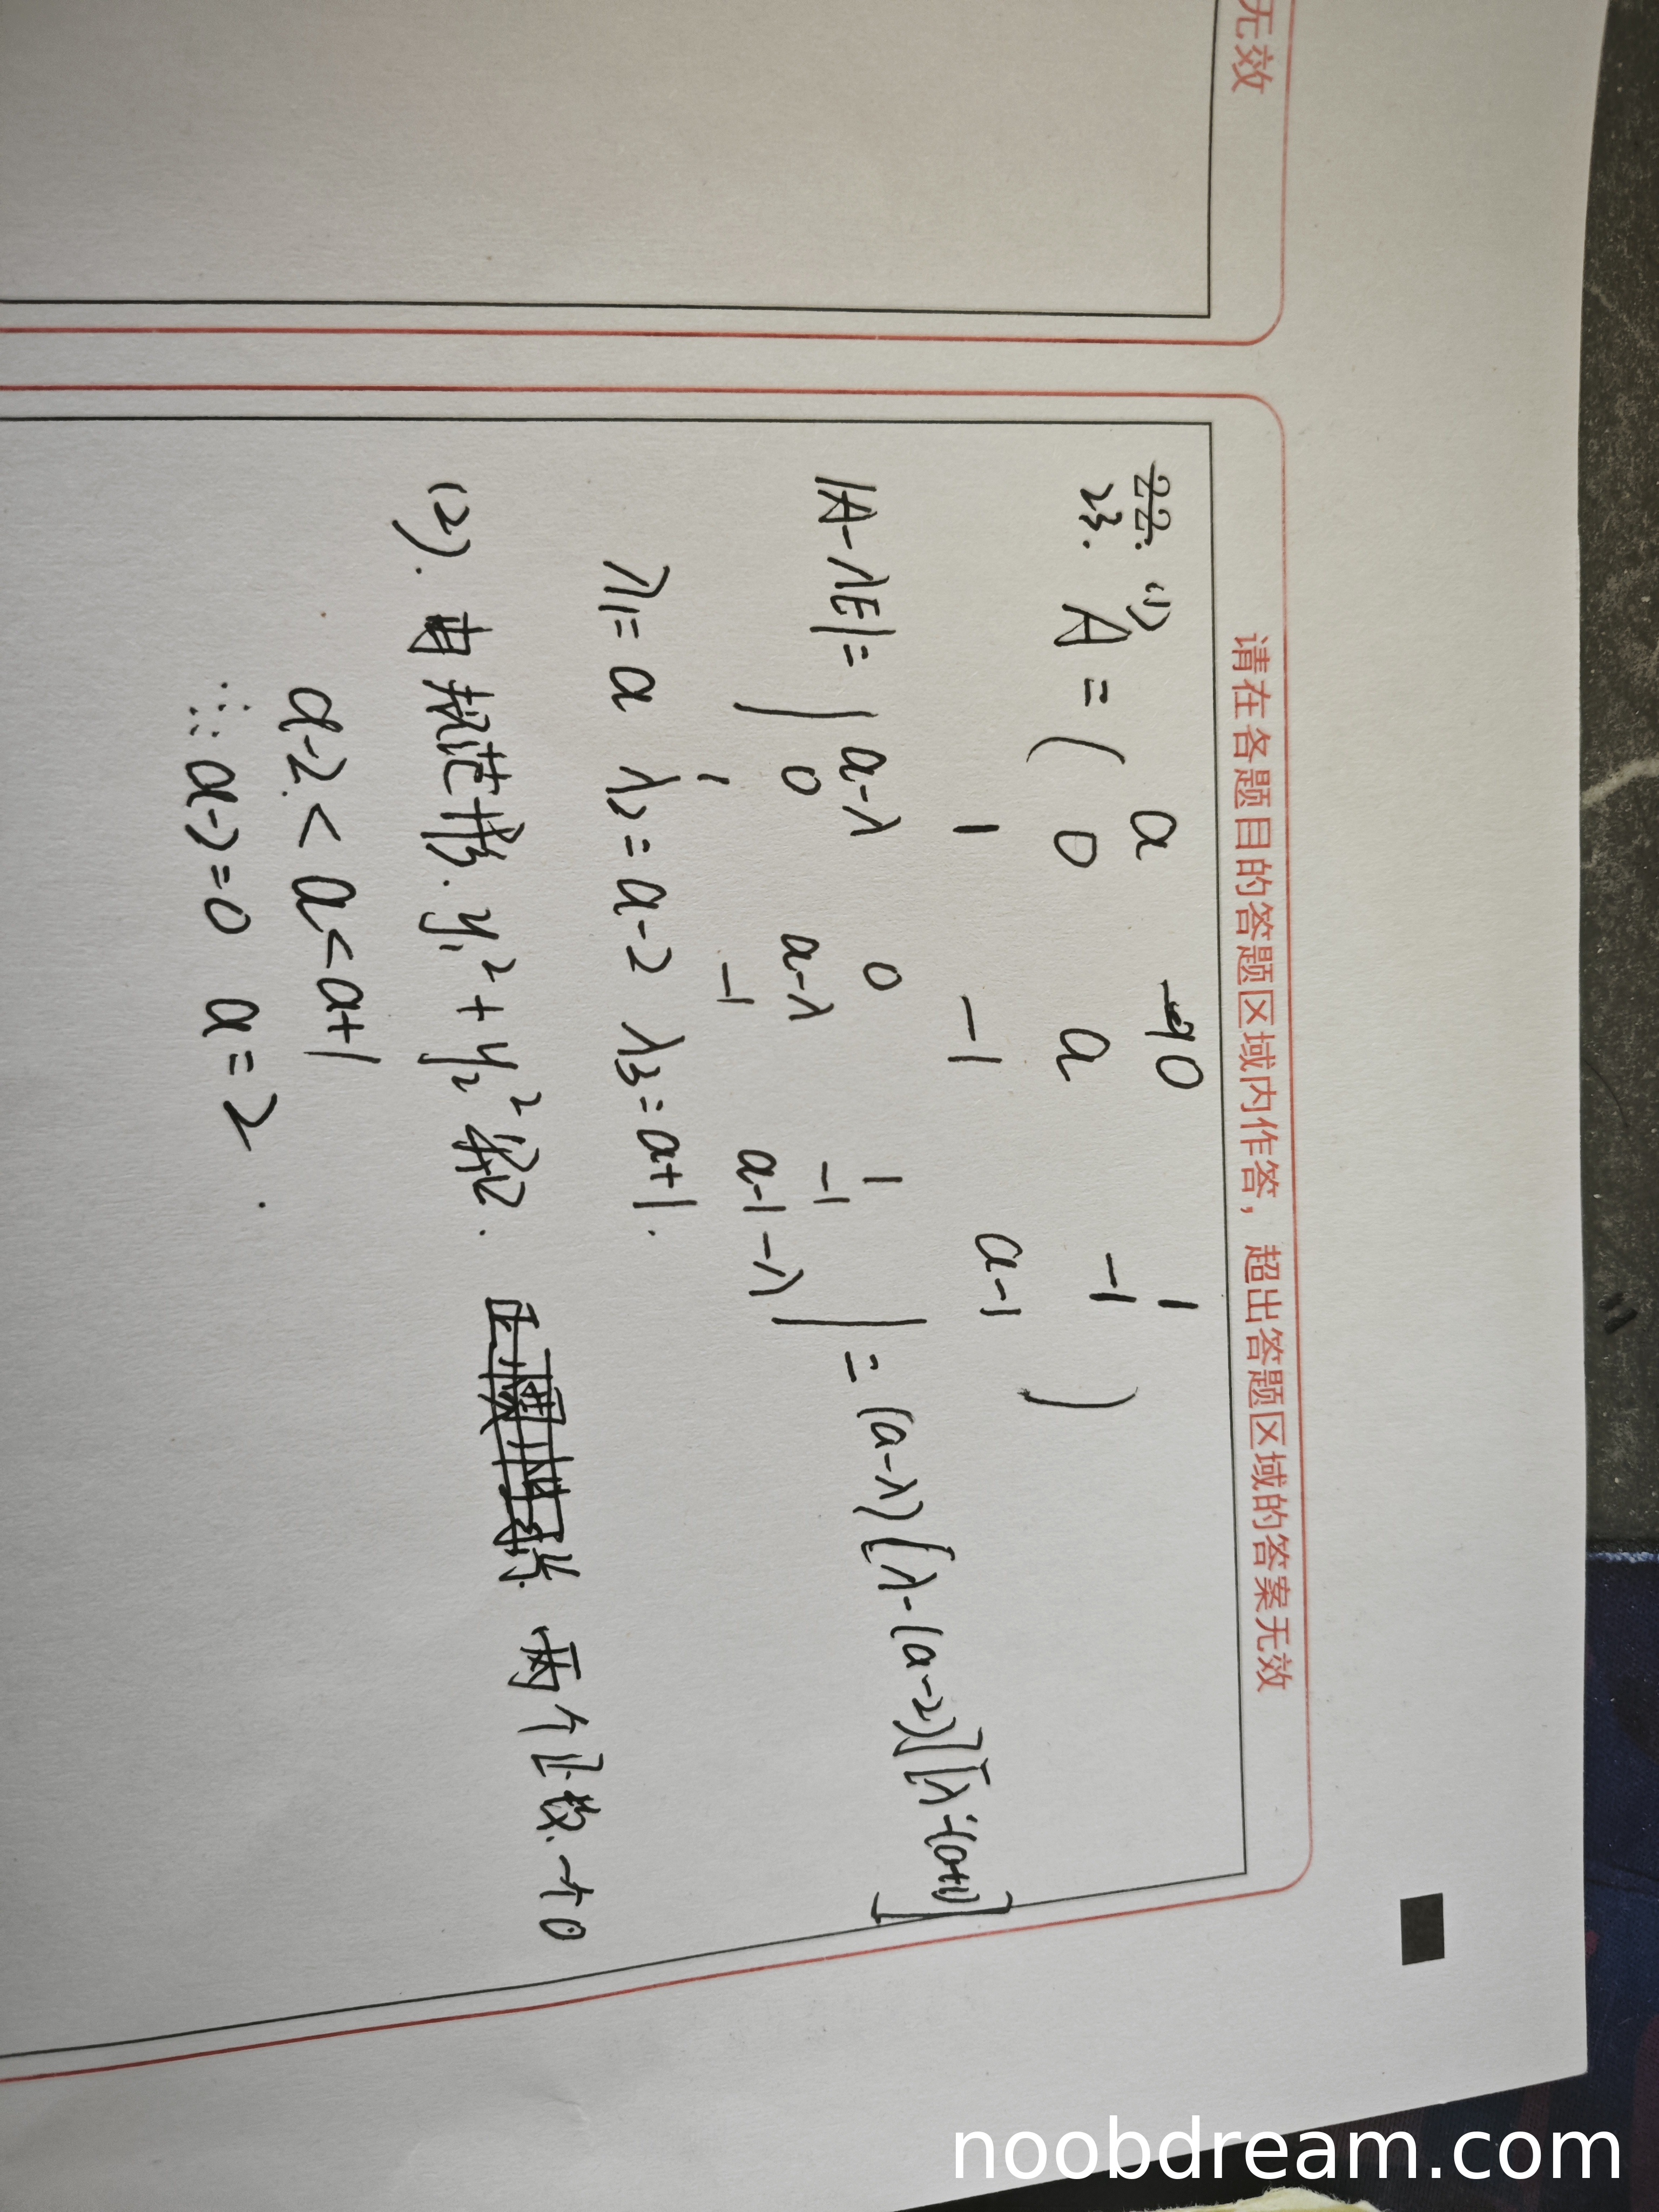 无效
请在各题目的答题区域内作答，超出答题区域的答案无效
22. (1)
23. A = ( a 0 1
0 a -1
1 -1 a-1 )
|A-λE| = | a-λ 0 1
0 a-λ -1
1 -1 a-1-λ | = (a-λ)[λ-(a-2)][λ-(a+1)]
λ1=a λ2=a-2 λ3=a+1.
(2). 由规范形. y₁²+y₂² 知. 两个正数. 一个0
a-2 < a < a+1
∴ a-2=0 a=2.
noobdream.com